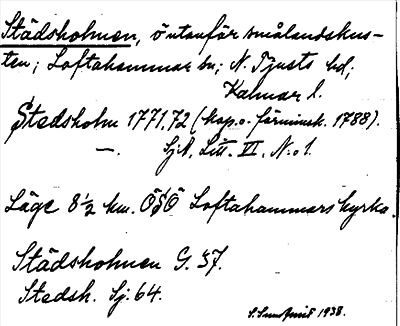 Städsholmen, ö utanför smålandskus-
ten; Loftahammar sn; N. Tjusts hd;
Kalmar l.
Stedsholm 1771,72 (kap. o. förminsk. 1788).
—. SjK, Litt. III, N:o 1.
Läge 8 1/2 km. ÖSÖ Loftahammars kyrka.
Städsholmen G. 57.
Stedsh. Sj. 64.
1938.